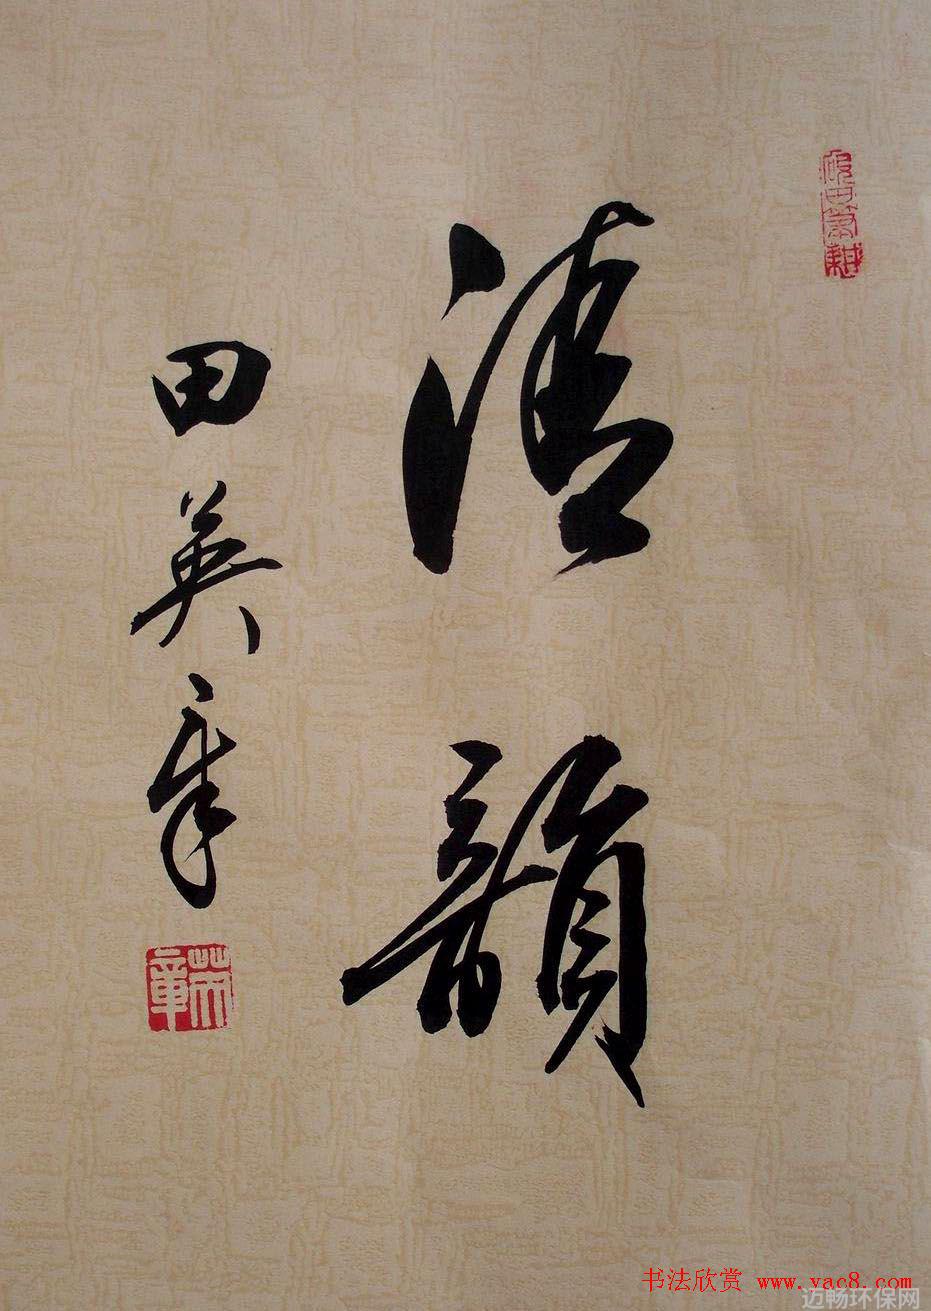 清韻
田英章
英章
书法欣赏 www.yac8.com
迈畅环保网